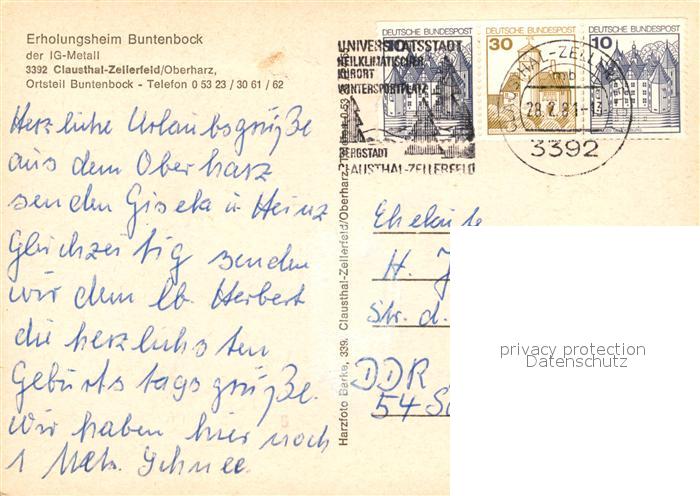 Erholungsheim Buntenbock
der IG-Metall
3392 Clausthal-Zellerfeld/Oberharz,
Ortsteil Buntenbock - Telefon 0 53 23 / 30 61 / 62
Herzliche Urlaubsgrüße
aus dem Oberharz
senden Gisela u Heinz
Gleichzeitig senden
wir dem lb. Herbert
die herzlichsten
Geburtstagsgrüße.
Wir haben hier noch
1 Mtr. Schnee.
Harzfoto Barke, 339. Clausthal-Zellerfeld/Oberharz, Telefon 0 53
UNIVERSITÄTSSTADT
HEILKLIMATISCHER
KURORT
WINTERSPORTPLATZ
BERGSTADT
CLAUSTHAL-ZELLERFELD
DEUTSCHE BUNDESPOST
10
DEUTSCHE BUNDESPOST
30
DEUTSCHE BUNDESPOST
10
CLAUSTHAL-ZELL
mb
3392
Eheleute
H. J
Str. d.
DDR
54 So
privacy protection
Datenschutz